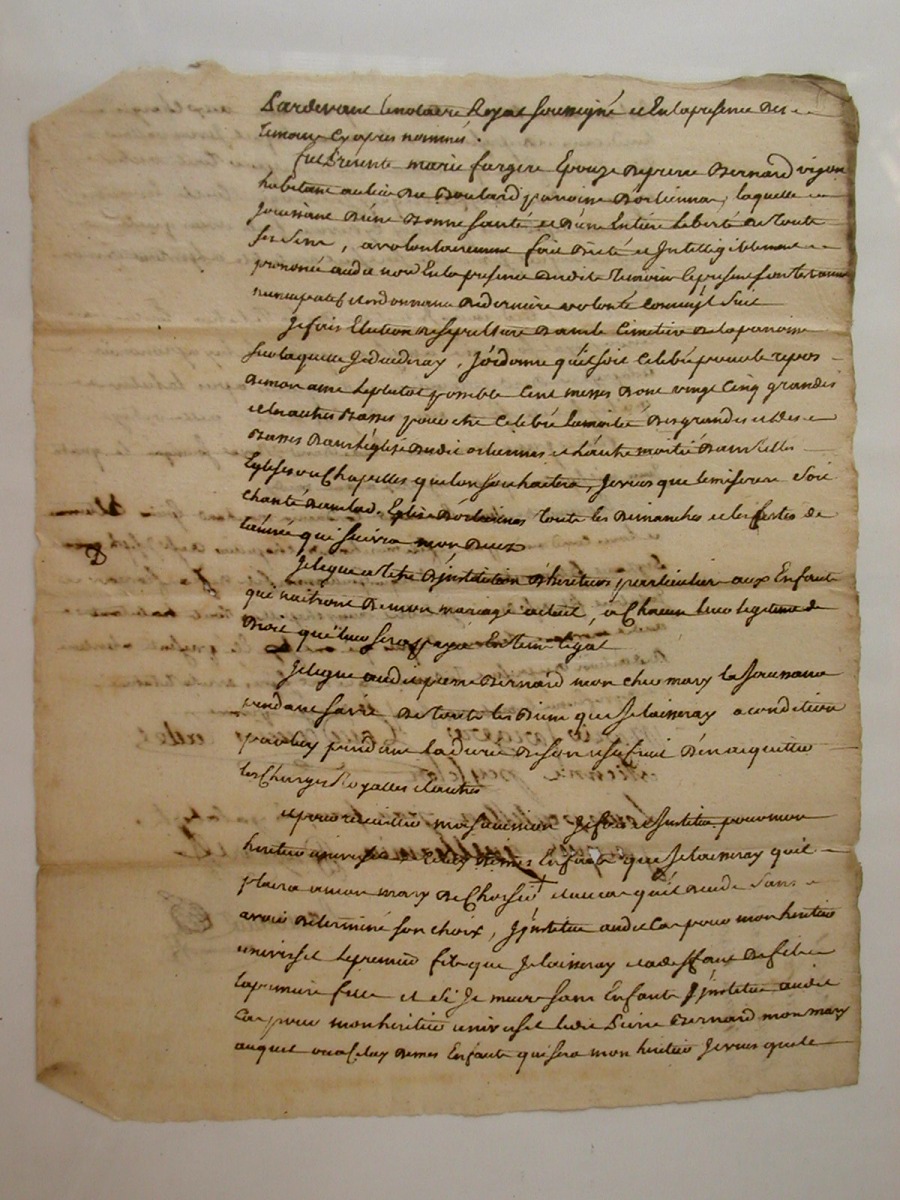 Pardevant le notaire Royal soussigné et En la presence des
temoins Cy apres nommés.
fut Présente marie fargere Epouze de pierre Bernard vigon
habitant au lieu du Boulard paroisse Dorliennas, laquelle
Jouissant d'une Bonne santé et D'une Entiere liberté de toute
ses sens, a volontairement fait Dicté et Intelligiblement
prononcé audit no.re En la presence desdits temoins le present son testament
nuncupatif et ordonnance de derniere volonté comme s'ensuit
Je fais Election de sepulture dans le Cimetiere de la paroisse
sur laquelle Je decederay, J'ordonne qu'il soit celebré pour le repos
de mon ame le plutot possible Cent messes dont vingt Cinq grandes
et les autres Basses pour etre Celebré la moitié des grandes et des
Basses dans l'église dudit orliennas et l'autre moitié dans telles
Eglises ou Chapelles que l'on souhaitera, Je veux que le miserere soit
chanté dans lad. Eglise d'orliennas toute les dimanches et les festes de
l'année que suivra mon deces
Je legue a titre d'institution d'heritiers particuliers aux Enfants
qui naitront de mon mariage actuel, a Chacun leur legitime de
droit qui leur sera payé En tems legal
Je legue audit pierre Bernard mon cher mary la Jouissance
pendant sa vie de toute les Biens que Je laisseray a condition
par luy pendant la durée de son usufruit d'en acquitter
les Charges Royalles et autres
et pour recueillir ma succession Je fais et Institue pour mon
heritier universel celuy de mes Enfants que Je laisseray qu'il
plaira a mon mary de Choisir et au cas qu'il decede sans
avoir determiné son choix, J'institue audit Cas pour mon heritier
universel le premier fils que Je laisseray et a deffaut de fils
la premiere fille et si Je meurs sans Enfants J'institue audit
Cas pour mon heritier universel ledit Pierre Bernard mon mary
auquel ou a Celuy de mes Enfants qui sera mon heritier Je veux que le